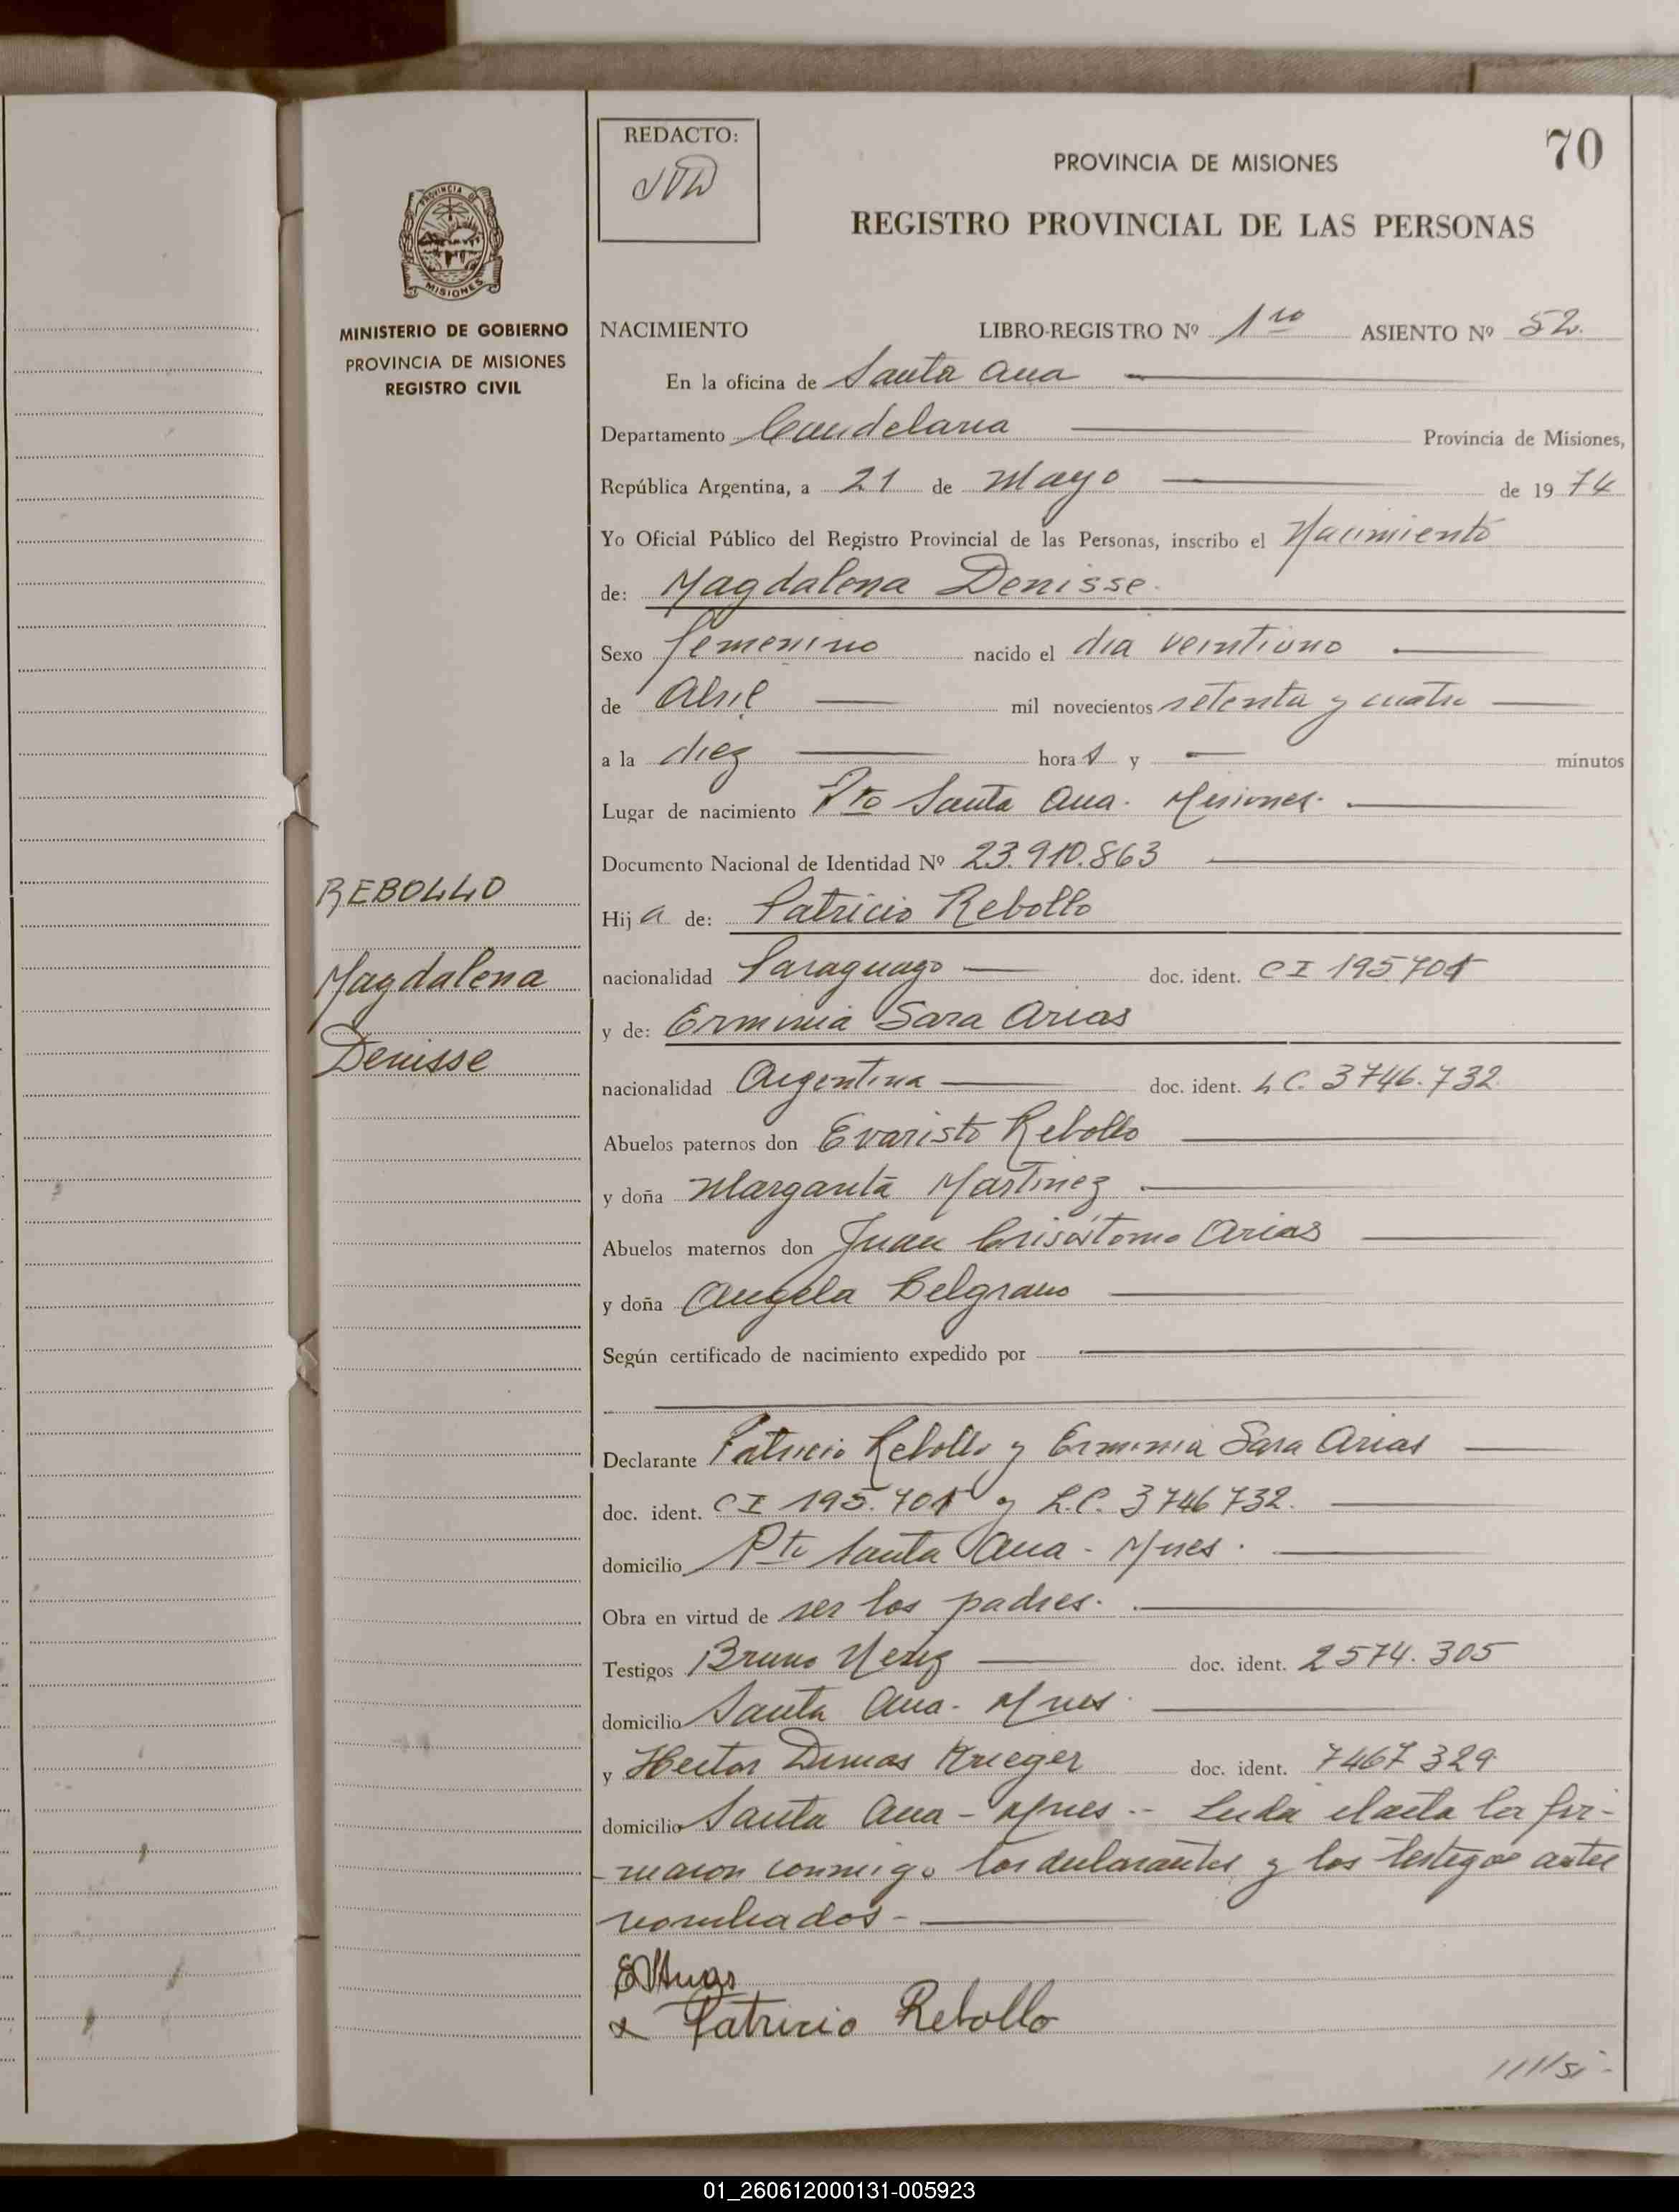 REDACTO:
70
PROVINCIA DE MISIONES
REGISTRO PROVINCIAL DE LAS PERSONAS
PROVINCIA DE
MISIONES
MINISTERIO DE GOBIERNO
PROVINCIA DE MISIONES
REGISTRO CIVIL
NACIMIENTO LIBRO-REGISTRO Nº 1ro ASIENTO Nº 52.
En la oficina de Santa Ana
Departamento Candelaria Provincia de Misiones,
República Argentina, a 21 de Mayo de 19 74
Yo Oficial Público del Registro Provincial de las Personas, inscribo el Nacimiento
de: Magdalena Denisse.
Sexo femenino nacido el dia veintiuno
de Abril mil novecientos setenta y cuatro
a la diez hora s y — minutos
Lugar de nacimiento Pto Santa Ana. Misiones.
Documento Nacional de Identidad Nº 23.910.863
REBOLLO
Magdalena
Denisse
Hij a de: Patricio Rebollo
nacionalidad Paraguayo doc. ident. CI 195.701
y de: Erminia Sara Arias
nacionalidad Argentina doc. ident. LC. 3746.732
Abuelos paternos don Evaristo Rebollo
y doña Margarita Martinez
Abuelos maternos don Juan Crisóstomo Arias
y doña Angela Belgrano
Según certificado de nacimiento expedido por
Declarante Patricio Rebollo y Erminia Sara Arias
doc. ident. CI 195.701 y L.C. 3746732.
domicilio Pto Santa Ana - Mnes.
Obra en virtud de ser los padres.
Testigos Bruno doc. ident. 2574.305
domicilio Santa Ana - Mnes.
y Hector Dimas Krieger doc. ident. 7467329
domicilio Santa Ana - Mnes.- Leida el acta la fir-
-maron conmigo los declarantes y los testigos antes
nombrados -
x Patricio Rebollo
01_260612000131-005923